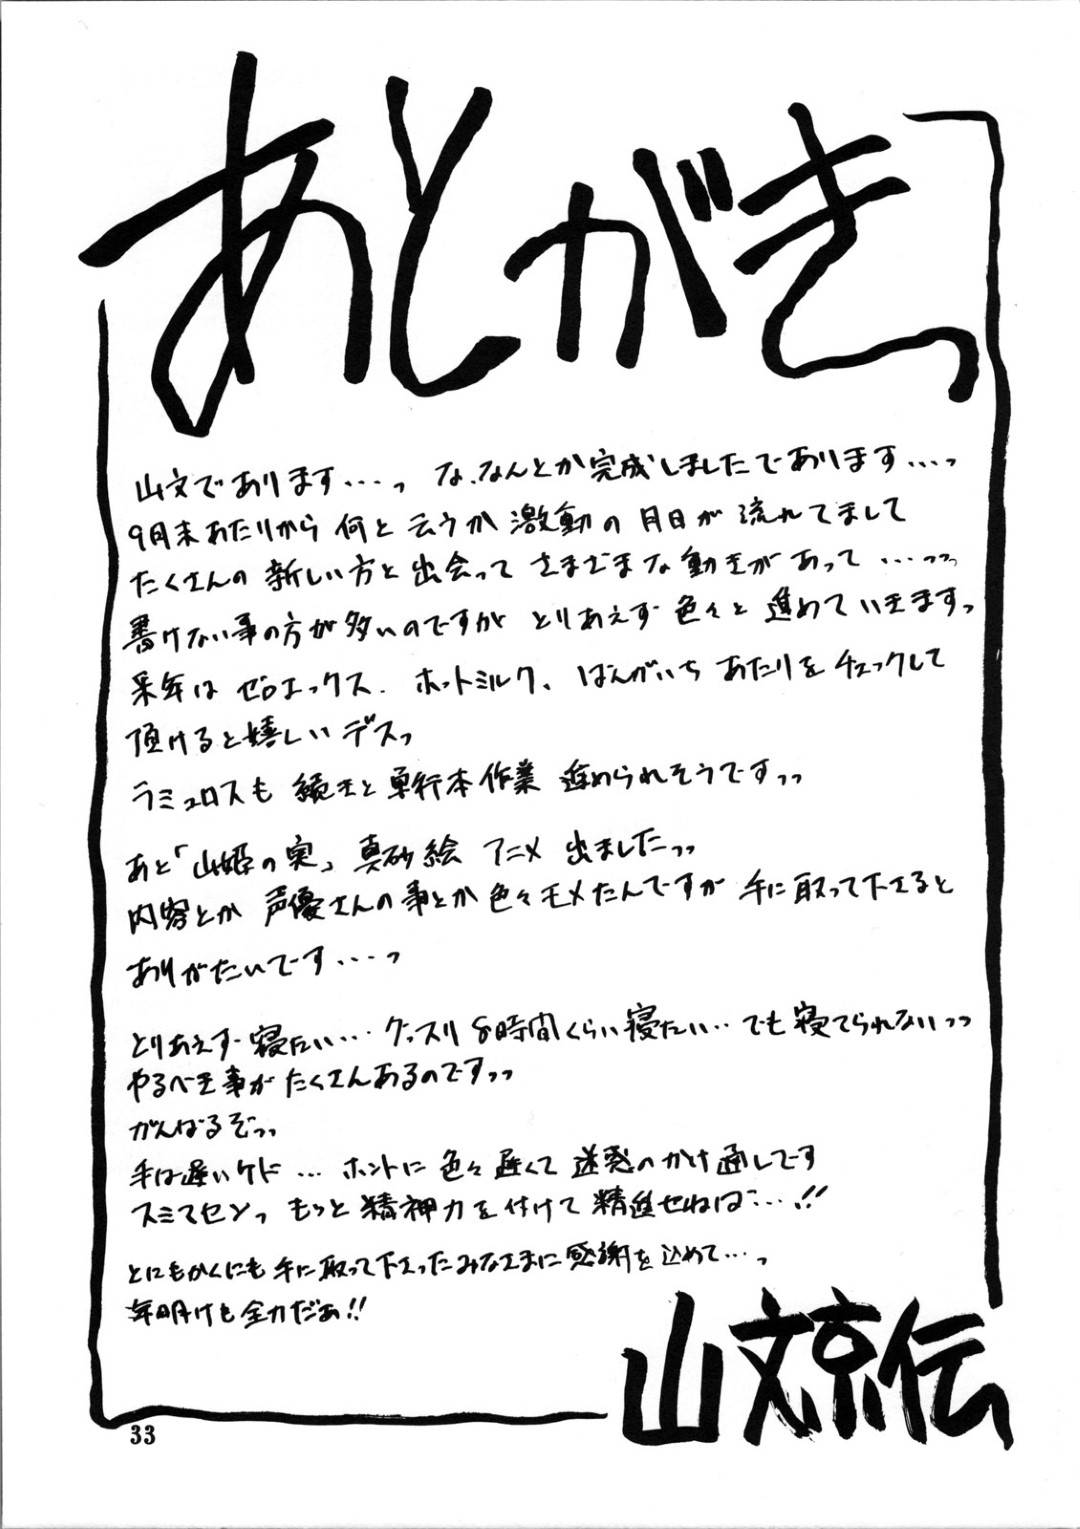 あとがきっ
山文であります・・・っ な、なんとか完成しましたであります・・・っ
9月末あたりから 何と云うか 激動の 月日が 流れてまして
たくさんの 新しい方と 出会って さまざまな 動きが あって ・・・っっ
書けない事の方が多いのですが とりあえず 色々と 進めていきますっ
来年は ゼロエックス、ホットミルク、ばんがいち あたりを チェックして
頂けると嬉しいデスっ
ラミュロスも 続きと 単行本作業 進められそうですっっ
あと「山姫の実」真砂絵 アニメ 出ましたっっ
内容とか 声優さんの事とか 色々モメたんですが 手に取って下さると
ありがたいです・・・っ
とりあえず 寝たい・・・グッスリ 8時間くらい 寝たい・・でも 寝てられないっっ
やるべき事が たくさんあるのですっっ
がんばるぞっっ
手は遅いケド ・・・ ホントに 色々 遅くて 迷惑のかけ通しです
スミマセンっ もっと 精神力を 付けて 精進せねば・・・!!
とにもかくにも 手に取って下さったみなさまに 感謝を込めて・・・っ
年明けも 全力だぁ!!
山文京伝
33